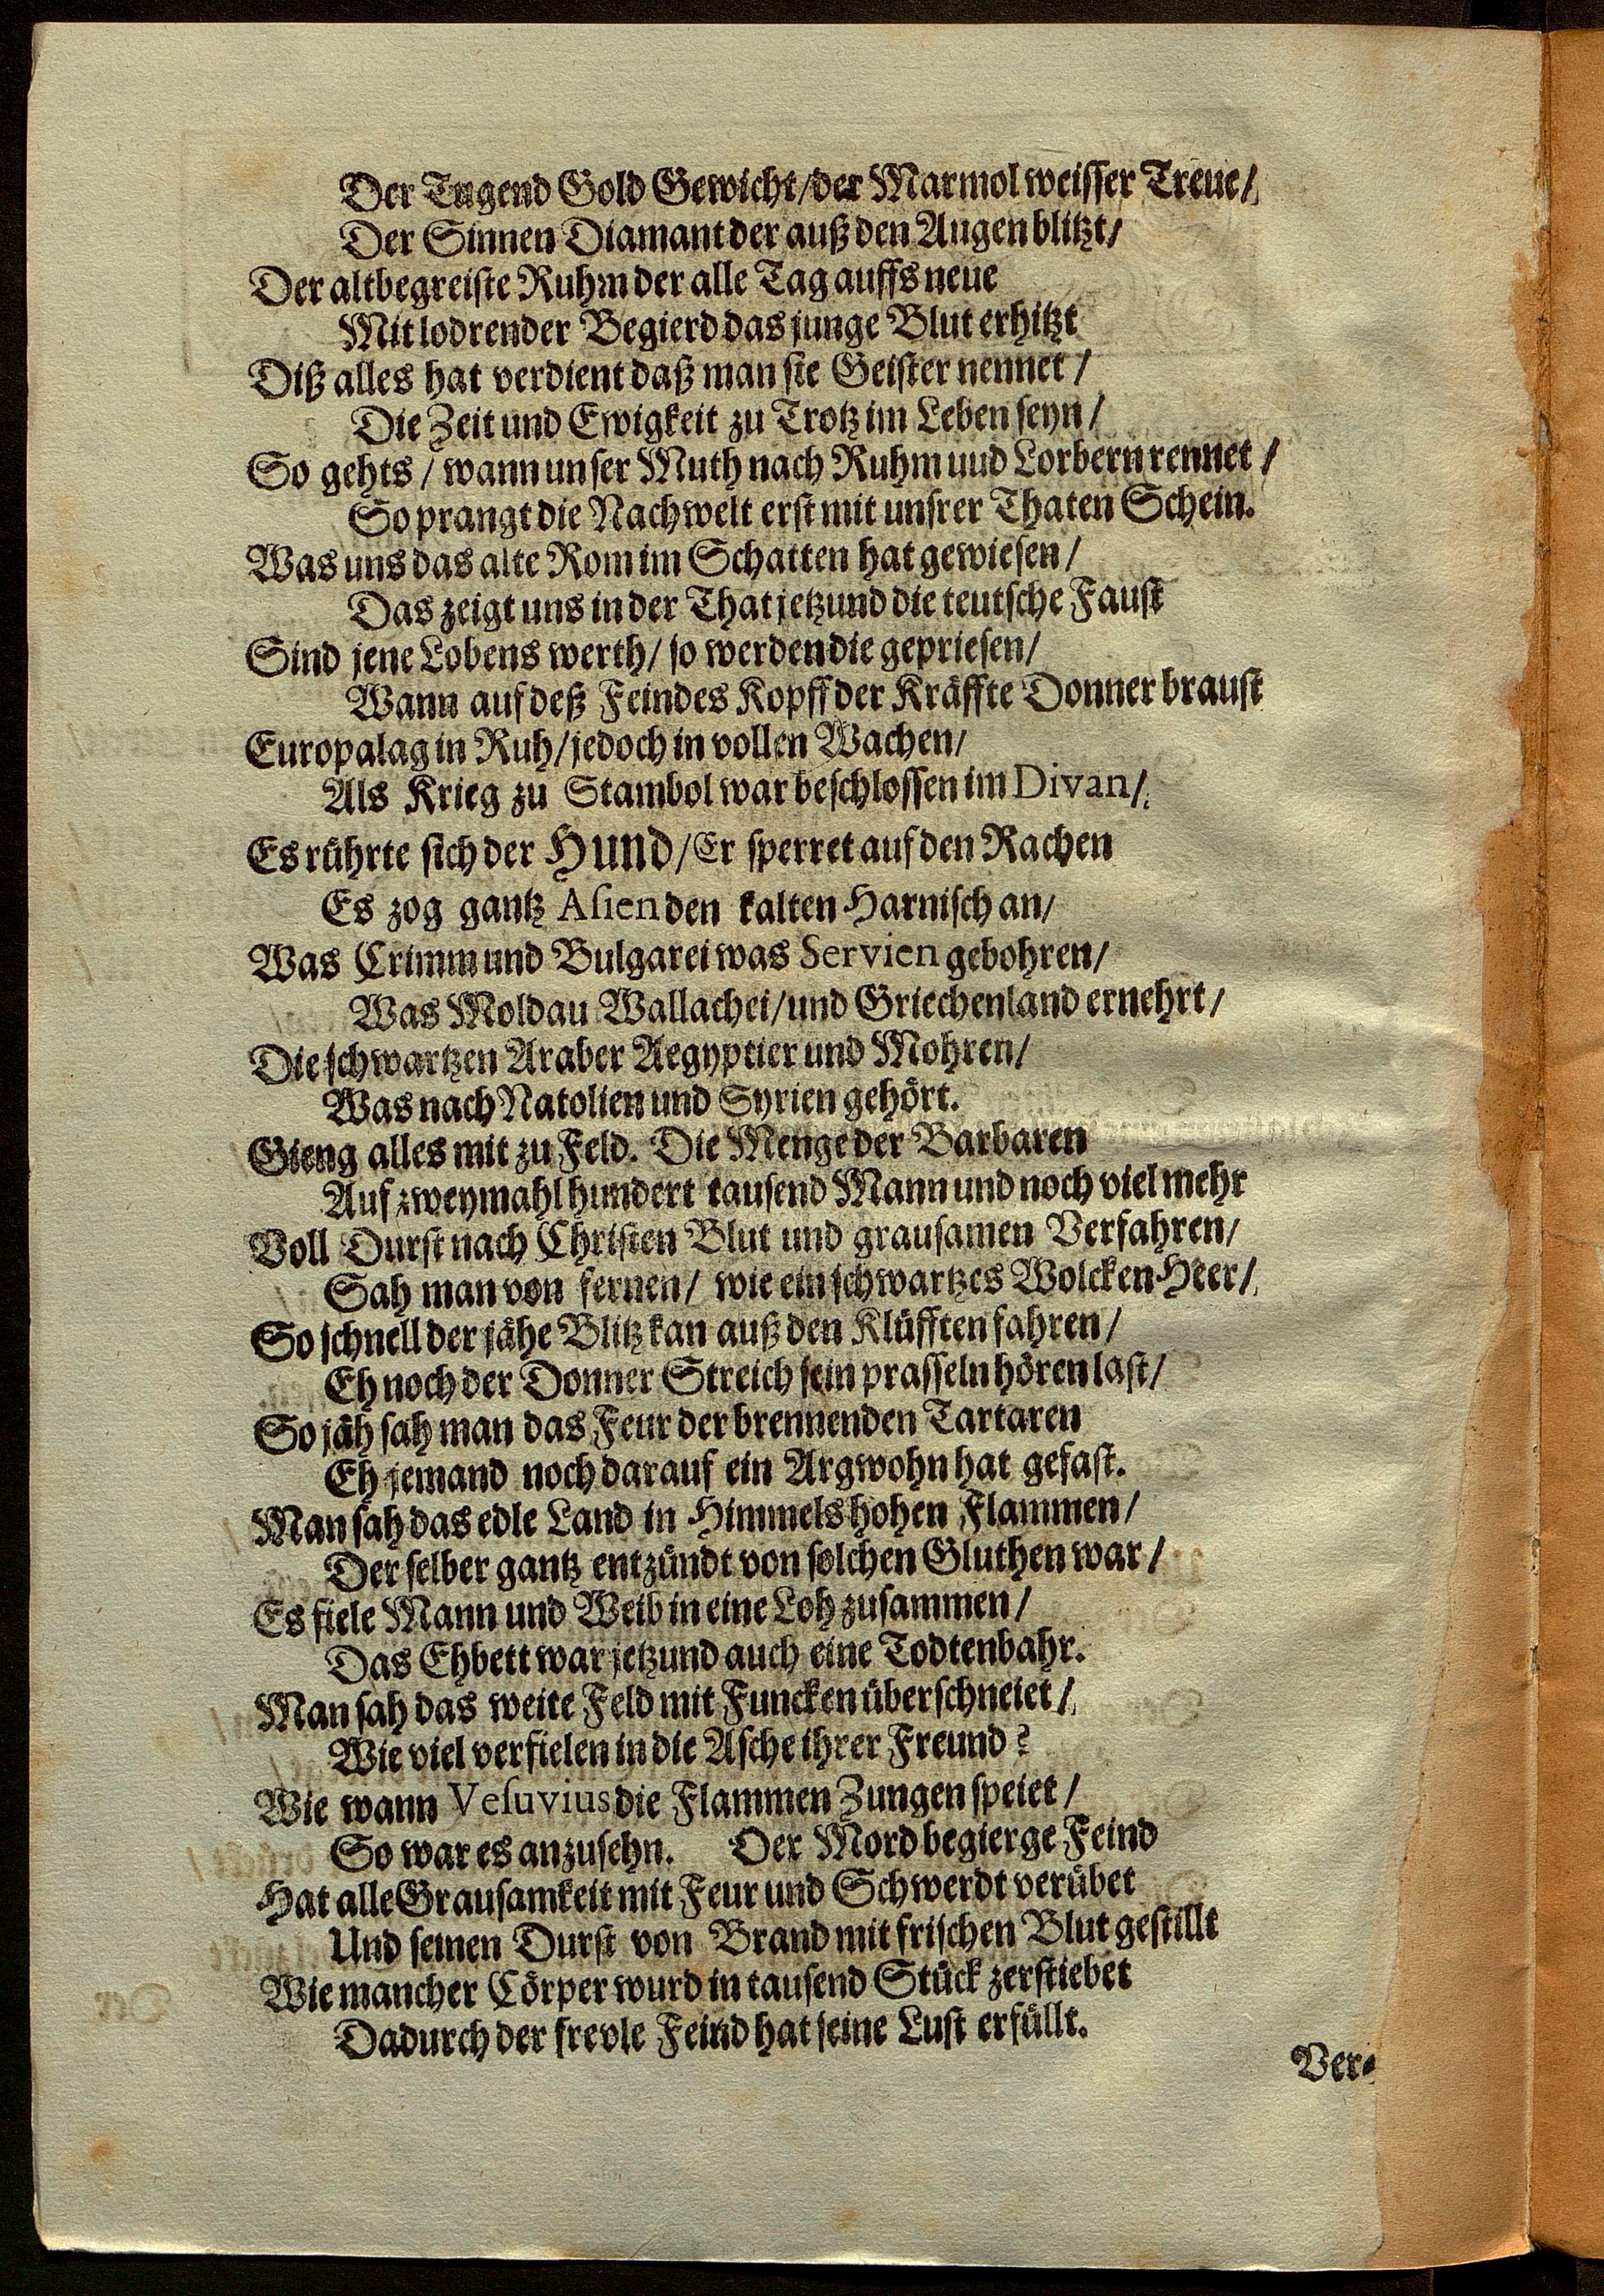 Der Tugend Gold Gewicht/der Marmol weisser Treue/
Der Sinnen Diamant der auß den Augen blitzt/
Der altbegreiste Ruhm der alle Tag auffs neue
Mit lodrender Begierd das junge Blut erhitzt
Diß alles hat verdient daß man sie Geister nennet/
Die Zeit und Ewigkeit zu Trotz im Leben seyn/
So gehts/wann unser Muth nach Ruhm uud Lorbern rennet/
So prangt die Nachwelt erst mit unsrer Thaten Schein.
Was uns das alte Rom im Schatten hat gewiesen/
Das zeigt uns in der That jetzund die teutsche Faust
Sind jene Lobens werth/ so werden die gepriesen/
Wann auf deß Feindes Kopff der Kräffte Donner braust
Europa lag in Ruh/jedoch in vollen Wachen/
Als Krieg zu Stambol war beschlossen im Divan/
Es rührte sich der Hund/Er sperret auf den Rachen
Es zog gantz Asien den kalten Harnisch an/
Was Crimm und Bulgarei was Servien gebohren/
Was Moldau Wallachei/und Griechenland ernehrt/
Die schwartzen Araber Aegyptier und Mohren/
Was nach Natolien und Syrien gehört.
Gieng alles mit zu Feld. Die Menge der Barbaren
Auf zweymahl hundert tausend Mann und noch viel mehr
Voll Durst nach Christen Blut und grausamen Verfahren/
Sah man von fernen/ wie ein schwartzes Wolcken-Heer/
So schnell der jähe Blitz kan auß den Klüfften fahren/
Eh noch der Donner Streich sein prasseln hören last/
So jäh sah man das Feur der brennenden Tartaren
Eh jemand noch darauf ein Argwohn hat gefast.
Man sah das edle Land in Himmels hohen Flammen/
Der selber gantz entzündt von solchen Gluthen war/
Es fiele Mann und Weib in eine Loh zusammen/
Das Ehbett war jetzund auch eine Todtenbahr.
Man sah das weite Feld mit Funcken überschneiet/
Wie viel verfielen in die Asche ihrer Freund?
Wie wann Vesuvius die Flammen Zungen speiet/
So war es anzusehn. Der Mordbegierge Feind
Hat alle Grausamkeit mit Feur und Schwerdt verübet
Und seinen Durst von Brand mit frischen Blut gestillt
Wie mancher Cörper wurd in tausend Stück zerstiebet
Dadurch der frevle Feind hat seine Lust erfüllt.
Ver-